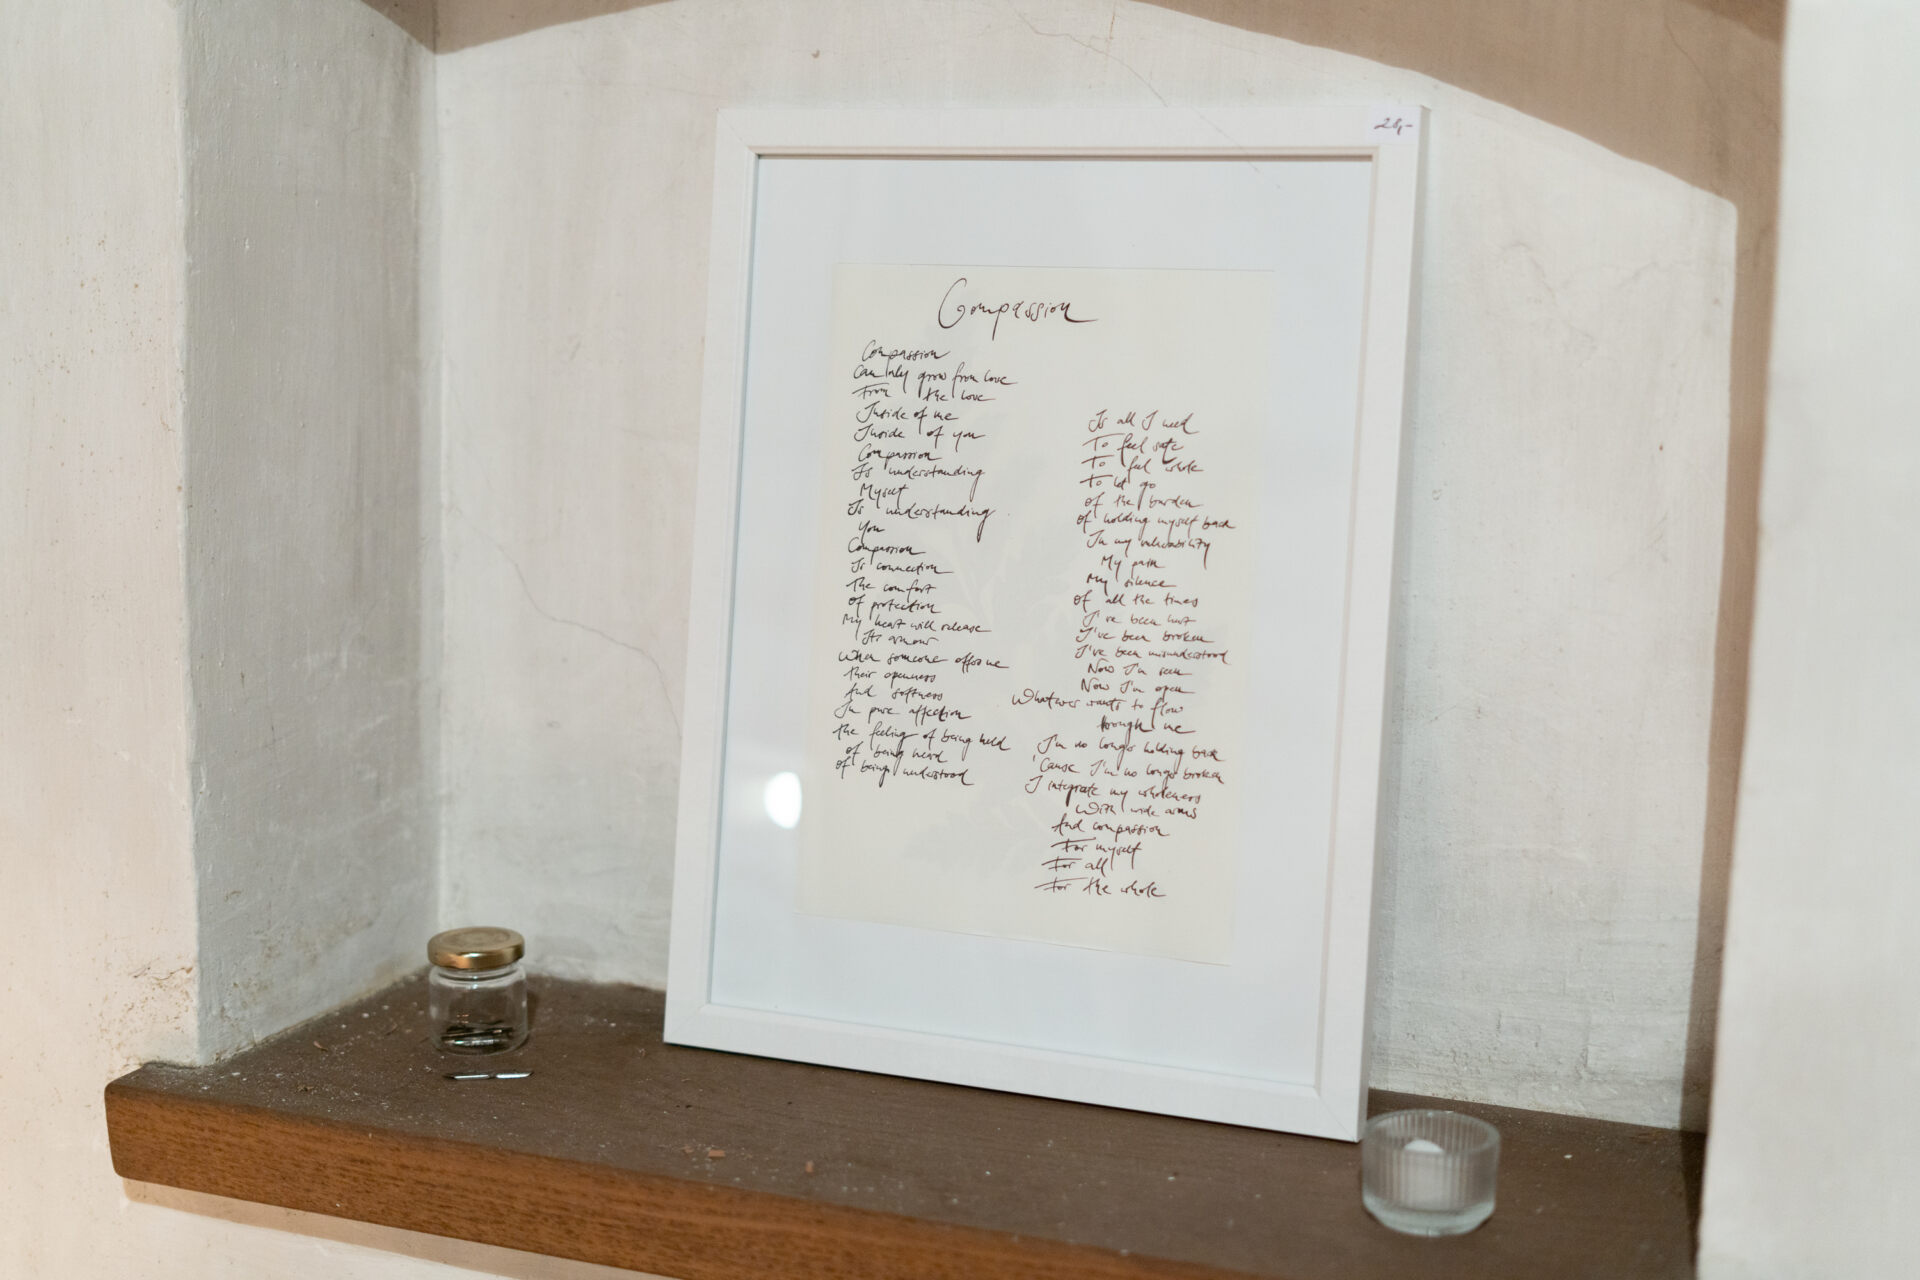 Compassion
Compassion
Can only grow from love
From the love
Inside of me
Inside of you
Compassion
Is understanding
Myself
Is understanding
You
Compassion
Is connection
The comfort
Of protection
My heart will release
Its armour
When someone offers me
their openness
And softness
In pure affection
the feeling of being held
of being heard
of being understood
Is all I need
To feel safe
To feel whole
To let go
of the burden
of holding myself back
In my vulnerability
My pain
My silence
of all the times
I've been hurt
I've been broken
I've been misunderstood
Now I'm seen
Now I'm open
Whatever wants to flow
trough me
I'm no longer holding back
'Cause I'm no longer broken
I integrate my wholeness
With wide arms
And compassion
For myself
For all
For the whole